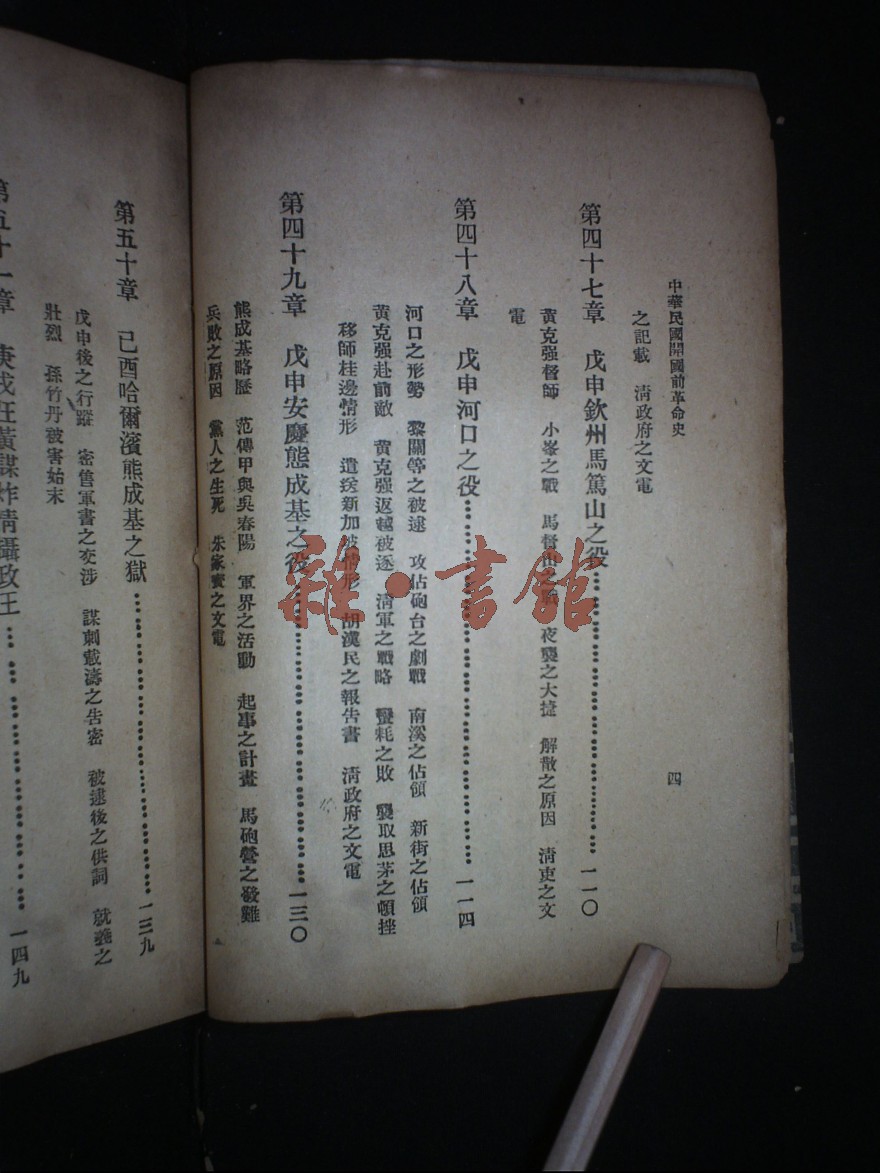 中華民國開國前革命史
四
之記載　淸政府之文電
第四十七章　戊申欽州馬篤山之役………一一〇
黃克强督師　小峯之戰　馬督山之戰　夜襲之大捷　解散之原因　淸吏之文
電
第四十八章　戊申河口之役………一一四
河口之形勢　黎關等之被逮　攻佔砲台之劇戰　南溪之佔領　新街之佔領
黃克强赴前敵　黃克强返越被逐　淸軍之戰略　蠻耗之敗　襲取思茅之頓挫
移師桂邊情形　遣送新加坡情形　胡漢民之報告書　淸政府之文電
第四十九章　戊申安慶態成基之役………一三〇
熊成基略歷　范傳甲與吳春陽　軍界之活動　起事之計畫　馬砲營之發難
兵敗之原因　黨人之生死　朱家寶之文電
第五十章　己酉哈爾濱熊成基之獄………一三九
戊申後之行蹤　密售軍書之交涉　謀刺載濤之告密　被逮後之供詞　就義之
壯烈　孫竹丹被害始末
第五十一章　庚戌汪黃謀炸淸攝政王………一四九
雜·書館